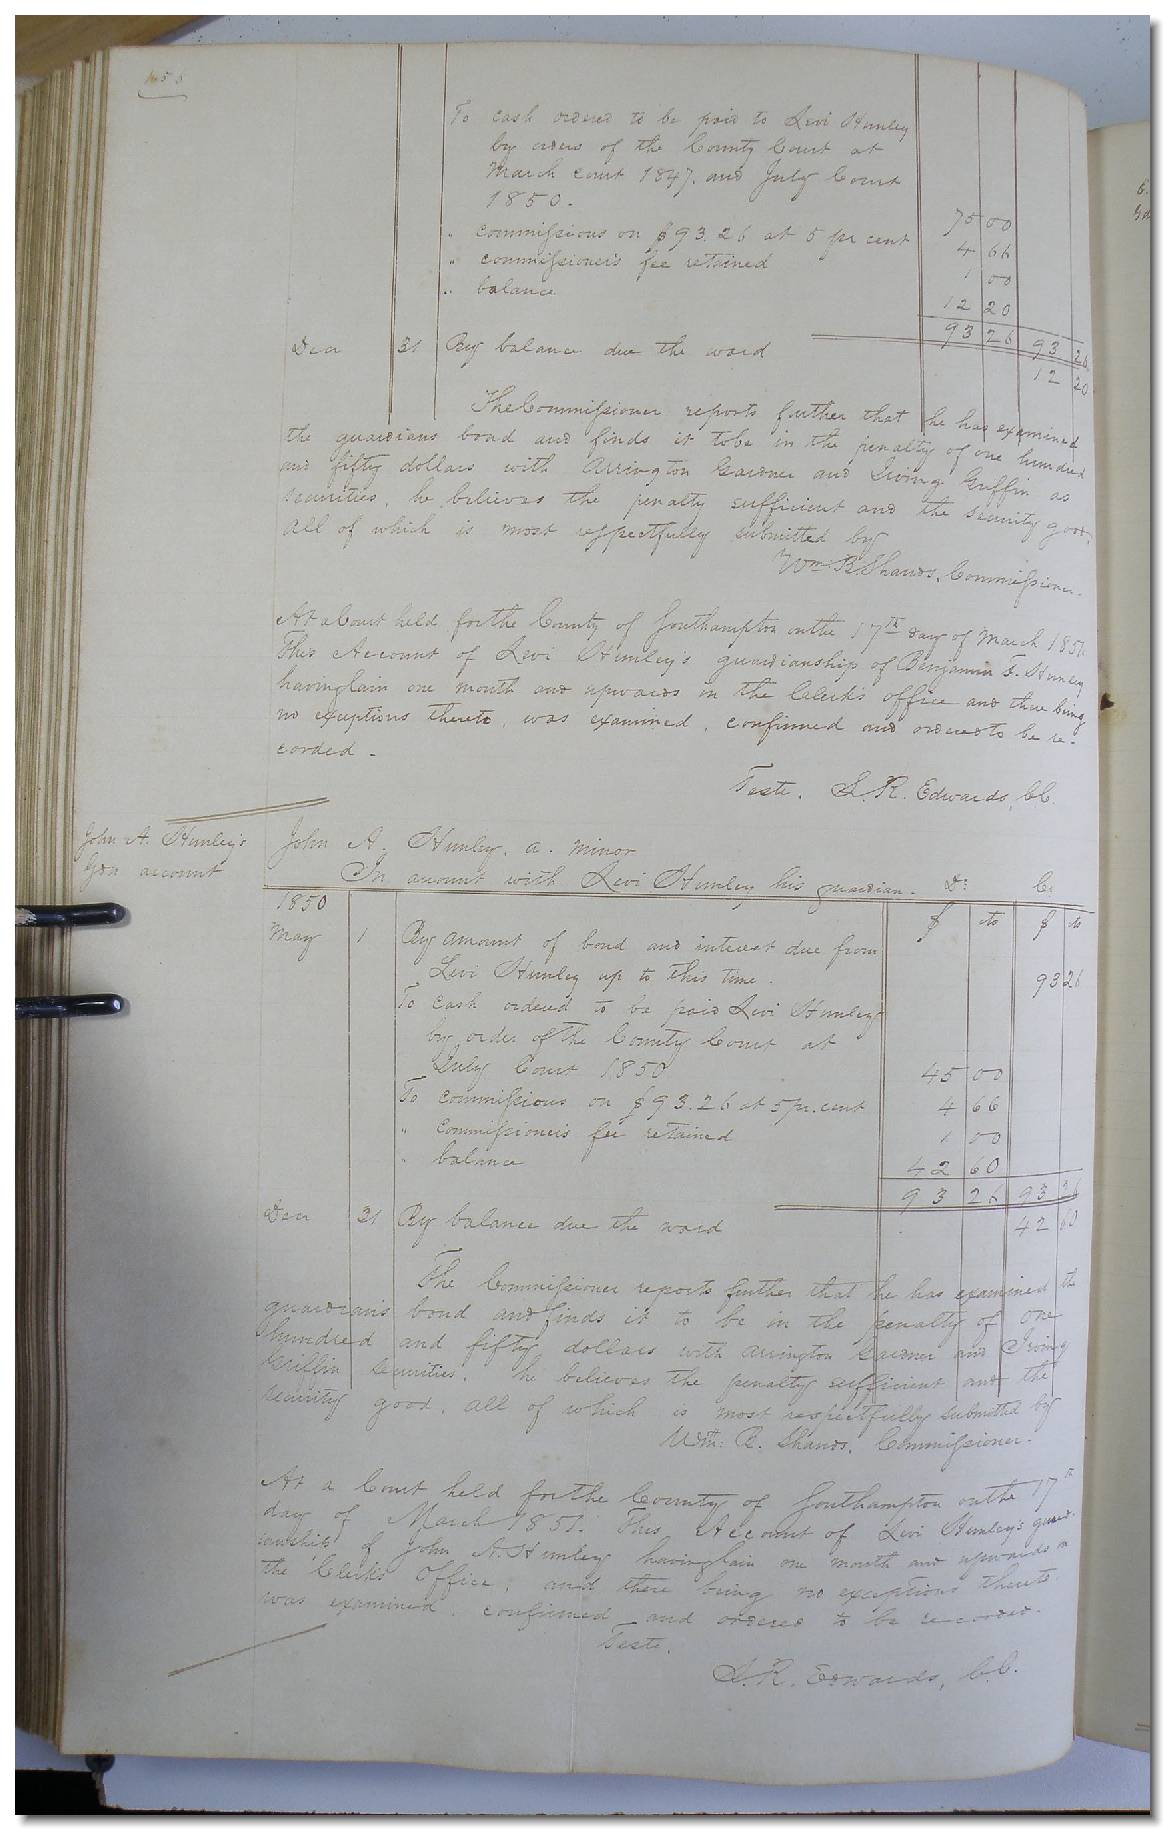 To cash ordered to be paid to Levi Humley
by orders of the County Court at
March court 1847. and July Court
1850. 75 00
" commissions on $93.26 at 5 pr cent 4 66
" commissioner's fee retained 1 00
" balance 12 20
93 26 93 26
Decr 31 By balance due the ward 12 20
The Commissioner reports further that he has examined
the guardians bond and finds it to be in the penalty of one hundred
and fifty dollars with Arrington Gardner and Irving Griffin as
securities, he believes the penalty sufficient and the security good.
All of which is most respectfully submitted by
Wm B Shands, Commissioner.
At a Court held for the County of Southampton on the 17th day of March 1851.
This Account of Levi Humley's guardianship of Benjamin F. Humley
having lain one month and upwards in the Clerk's office and there being
no exceptions thereto, was examined, confirmed and ordered to be re-
corded -
Teste. L. R. Edwards, C.C.
John A. Humley's
Gdn account
John A. Humley, a minor
In account with Levi Humley his guardian. Dr Cr
1850 $ cts $ cts
May 1 By amount of bond and interest due from
Levi Humley up to this time. 93 26
To cash ordered to be paid Levi Humley
by order of the County Court at
July Court 1850 45 00
To commissions on $93.26 at 5 pr. cent 4 66
" commissioners fee retained 1 00
" balance 42 60
93 26 93 26
Decr 31 By balance due the ward 42 60
The Commissioner reports further that he has examined the
guardians bond and finds it to be in the penalty of one
hundred and fifty dollars with Arrington Gardner and Irving
Griffin securities. he believes the penalty sufficient and the
security good. all of which is most respectfully submitted by
Wm: B. Shands, Commissioner.
At a Court held for the County of Southampton on the 17th
day of March 1851. This Account of Levi Humley's guard-
ianship of John A. Humley having lain one month and upwards in
the Clerks Office, and there being no exceptions thereto
was examined, confirmed and ordered to be recorded.
Teste.
L. R. Edwards, C.C.